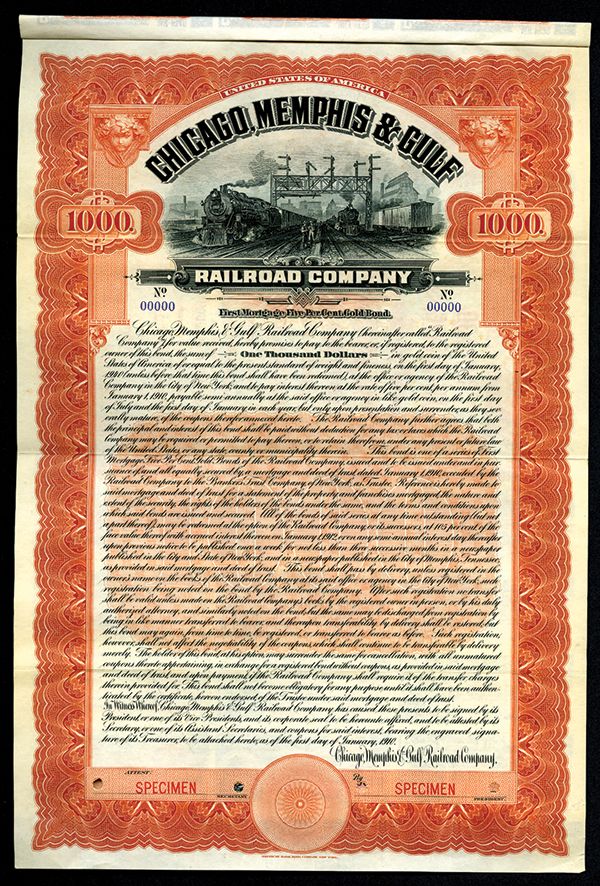 UNITED STATES OF AMERICA
CHICAGO, MEMPHIS & GULF
1000.
1000.
RAILROAD COMPANY
No
00000
No
00000
First Mortgage Five Per Cent. Gold Bond.
Chicago, Memphis & Gulf Railroad Company (hereinafter called "Railroad
Company"), for value received, hereby promises to pay to the bearer, or, if registered, to the registered
owner of this bond, the sum of One Thousand Dollars in gold coin of the United
States of America of or equal to the present standard of weight and fineness, on the first day of January,
1940 (unless before that time this bond shall have been redeemed), at the office or agency of the Railroad
Company in the City of New York, and to pay interest thereon at the rate of five per cent per annum, from
January 1, 1910, payable semi-annually at the said office or agency in like gold coin, on the first day
of July and the first day of January in each year, but only upon presentation and surrender, as they sev-
erally mature, of the coupons therefor annexed hereto. The Railroad Company further agrees that both
the principal and interest of this bond shall be paid without deduction for any tax or taxes which the Railroad
Company may be required or permitted to pay thereon, or to retain therefrom, under any present or future law
of the United States, or any state, county or municipality therein. This bond is one of a series of First
Mortgage Five Per Cent. Gold Bonds of the Railroad Company, issued and to be issued under and in pur-
suance of, and all equally secured by, a mortgage and deed of trust dated January 1, 1910, executed by the
Railroad Company to the Bankers Trust Company, of New York, as Trustee. Reference is hereby made to
said mortgage and deed of trust for a statement of the property and franchises mortgaged, the nature and
extent of the security, the rights of the holders of the bonds under the same, and the terms and conditions upon
which said bonds are issued and secured. All of the bonds of said series at any time outstanding (but not
a part thereof), may be redeemed at the option of the Railroad Company, or its successors, at 105 per cent of the
face value thereof with accrued interest thereon on January 1, 1912, or on any semi-annual interest day thereafter
upon previous notice to be published once a week for not less than three successive months in a newspaper
published in the City and State of New York, and in a newspaper published in the City of Memphis, Tennessee,
as provided in said mortgage and deed of trust. This bond shall pass by delivery, unless registered in the
owner's name on the books of the Railroad Company at its said office or agency in the City of New York, such
registration being noted on the bond by the Railroad Company. After such registration no transfer
shall be valid unless made on the Railroad Company's books by the registered owner in person, or by his duly
authorized attorney, and similarly noted on the bond, but the same may be discharged from registration by
being in like manner transferred to bearer, and thereupon transferability by delivery shall be restored, but
this bond may again, from time to time, be registered, or transferred to bearer as before. Such registration,
however, shall not affect the negotiability of the coupons, which shall continue to be transferable by delivery
merely. The holder of this bond at his option, may surrender the same for cancellation, with all unmatured
coupons thereto appertaining, in exchange for a registered bond without coupons, as provided in said mortgage
and deed of trust and upon payment, if the Railroad Company shall require it, of the transfer charges
therein provided for. This bond shall not become obligatory for any purpose until it shall have been authen-
ticated by the certificate hereon endorsed, of the Trustee under said mortgage and deed of trust.
In Witness Whereof, Chicago, Memphis & Gulf Railroad Company has caused these presents to be signed by its
President or one of its Vice-Presidents, and its corporate seal to be hereunto affixed, and to be attested by its
Secretary, or one of its Assistant Secretaries, and coupons for said interest, bearing the engraved signa-
ture of its Treasurer, to be attached hereto, as of the first day of January, 1910.
Chicago, Memphis & Gulf Railroad Company,
ATTEST:
By
SPECIMEN
SPECIMEN
SECRETARY.
PRESIDENT.